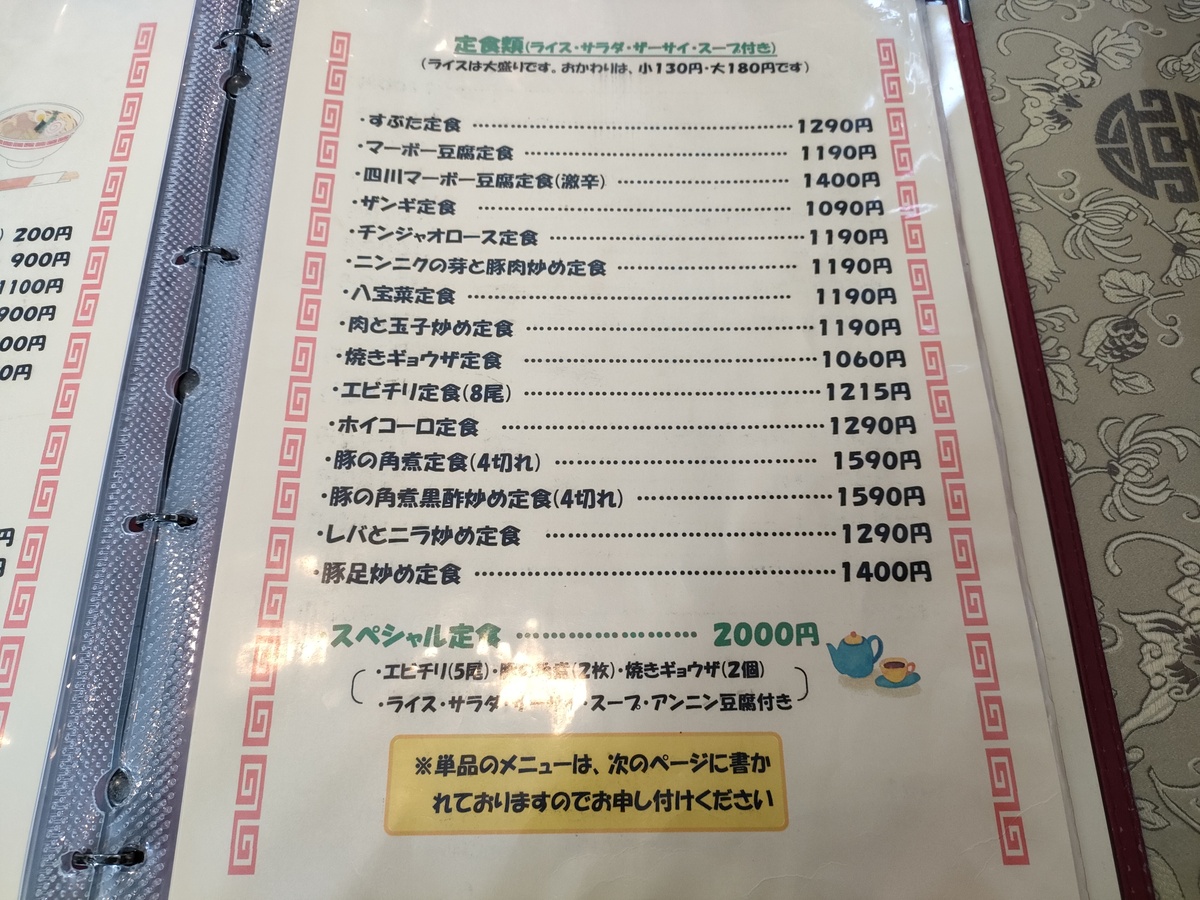 ) 200円
900円
1100円
900円
00円
0円
円
定食類(ライス・サラダ・ザーサイ・スープ付き)
(ライスは大盛りです。おかわりは、小130円・大180円です)
・すぶた定食 …………………………… 1290円
・マーボー豆腐定食 …………………………… 1190円
・四川マーボー豆腐定食(激辛) …………………… 1400円
・ザンギ定食 …………………………… 1090円
・チンジャオロース定食 …………………………… 1190円
・ニンニクの芽と豚肉炒め定食 …………………… 1190円
・八宝菜定食 …………………………… 1190円
・肉と玉子炒め定食 …………………………… 1190円
・焼きギョウザ定食 …………………………… 1060円
・エビチリ定食(8尾) …………………………… 1215円
・ホイコーロ定食 …………………………… 1290円
・豚の角煮定食(4切れ) …………………………… 1590円
・豚の角煮黒酢炒め定食(4切れ) …………………… 1590円
・レバとニラ炒め定食 …………………………… 1290円
・豚足炒め定食 …………………………… 1400円
・スペシャル定食 …………………… 2000円
・エビチリ(5尾)・豚の角煮(2枚)・焼きギョウザ(2個)
・ライス・サラダ・ザーサイ・スープ・アンニン豆腐付き
※単品のメニューは、次のページに書か
れておりますのでお申し付けください